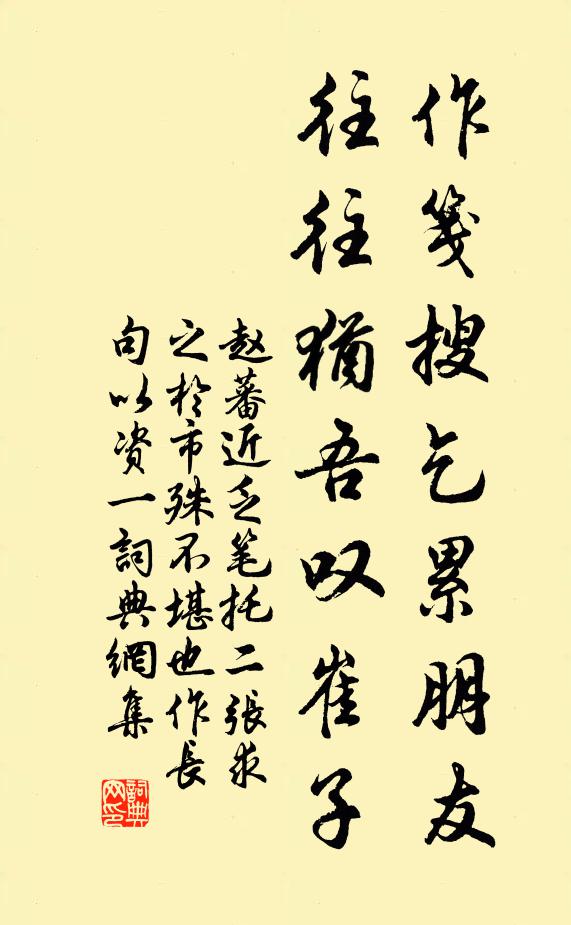 作笺搜乞累朋友
往往犹吾叹崔子
赵蕃近乏笔托二张求
之於市殊不堪也作長
句以资一詞典網集
詞典
网印